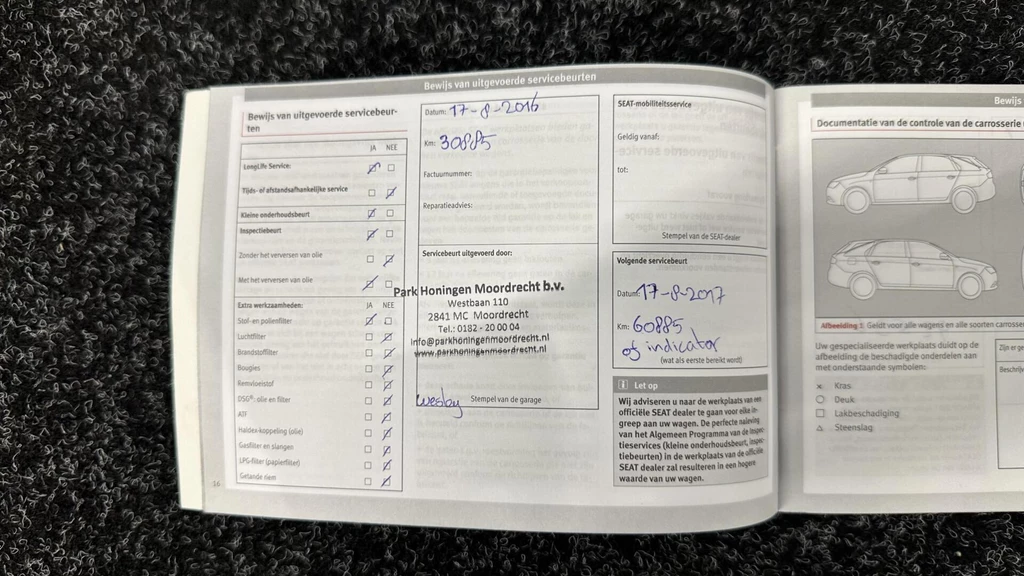 Bewijs van uitgevoerde servicebeurten
Bewijs van uitgevoerde servicebeur-
ten
JA NEE
LongLife Service:
Tijds- of afstandsafhankelijke service
Kleine onderhoudsbeurt
Inspectiebeurt
Zonder het verversen van olie
Met het verversen van olie
Extra werkzaamheden: JA NEE
Stof- en pollenfilter
Luchtfilter
Brandstoffilter
Bougies
Remvloeistof
DSG®: olie en filter
ATF
Haldex-koppeling (olie)
Gasfilter en slangen
LPG-filter (papierfilter)
Getande riem
16
Datum: 17-8-2016
Km: 30885
Factuurnummer:
Reparatieadvies:
Servicebeurt uitgevoerd door:
Park Honingen Moordrecht b.v.
Westbaan 110
2841 MC Moordrecht
Tel.: 0182 - 20 00 04
info@parkhoningenmoordrecht.nl
www.parkhoningenmoordrecht.nl
Wesley
Stempel van de garage
SEAT-mobiliteitsservice
Geldig vanaf:
tot:
Stempel van de SEAT-dealer
Volgende servicebeurt
Datum: 17-8-2017
Km: 60885
of indicator
(wat als eerste bereikt wordt)
Let op
Wij adviseren u naar de werkplaats van een
officiële SEAT dealer te gaan voor elke in-
greep aan uw wagen. De perfecte naleving
van het Algemeen Programma van de Inspec-
tieservices (kleine onderhoudsbeurt, inspec-
tiebeurten) in de werkplaats van de officiële
SEAT dealer zal resulteren in een hogere
waarde van uw wagen.
Bewijs
Documentatie van de controle van de carrosserie
Afbeelding 1 Geldt voor alle wagens en alle soorten carrosse
Uw gespecialiseerde werkplaats duidt op de
afbeelding de beschadigde onderdelen aan
met onderstaande symbolen:
Kras
Deuk
Lakbeschadiging
Steenslag
Zijn er ge
Beschrijv